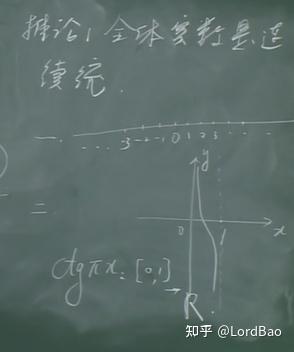 推论1 全体实数是连
续统.
一. ... -3 -2 -1 0 1 2 3 ...
y
二
0 1 x
ctgπx: [0,1]
→ R.
知乎 @LordBao